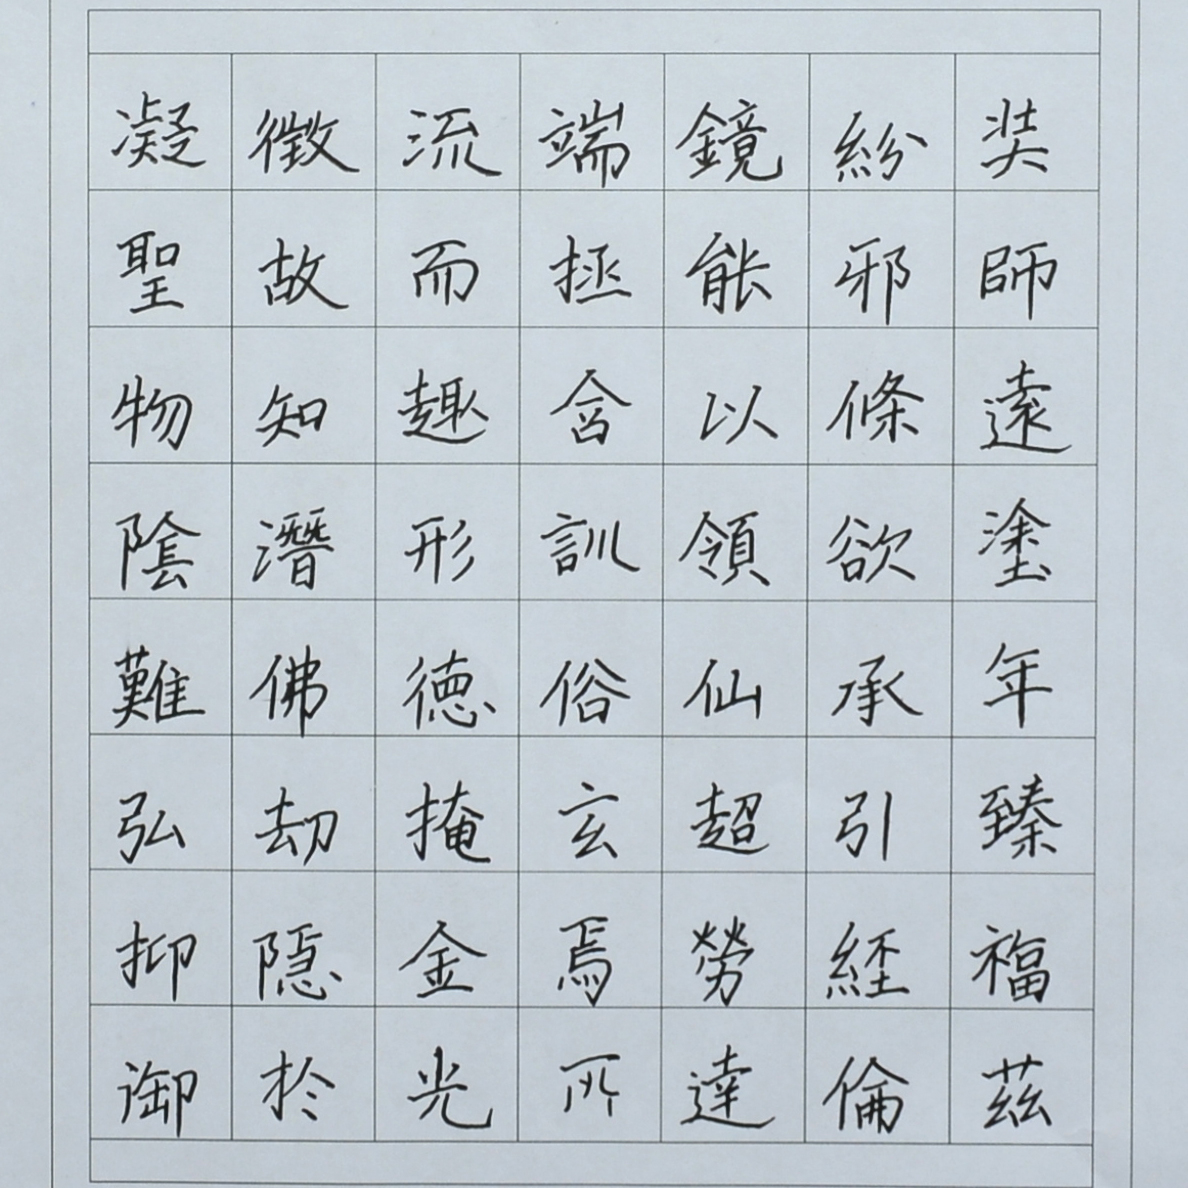 凝聖物陰難弘抑御
徵故知潛佛劫隱於
流而趣形德掩金光
端拯含訓俗玄焉匹
鏡能以領仙超勞達
紛邪條欲承引經倫
奘師遠塗年臻福茲